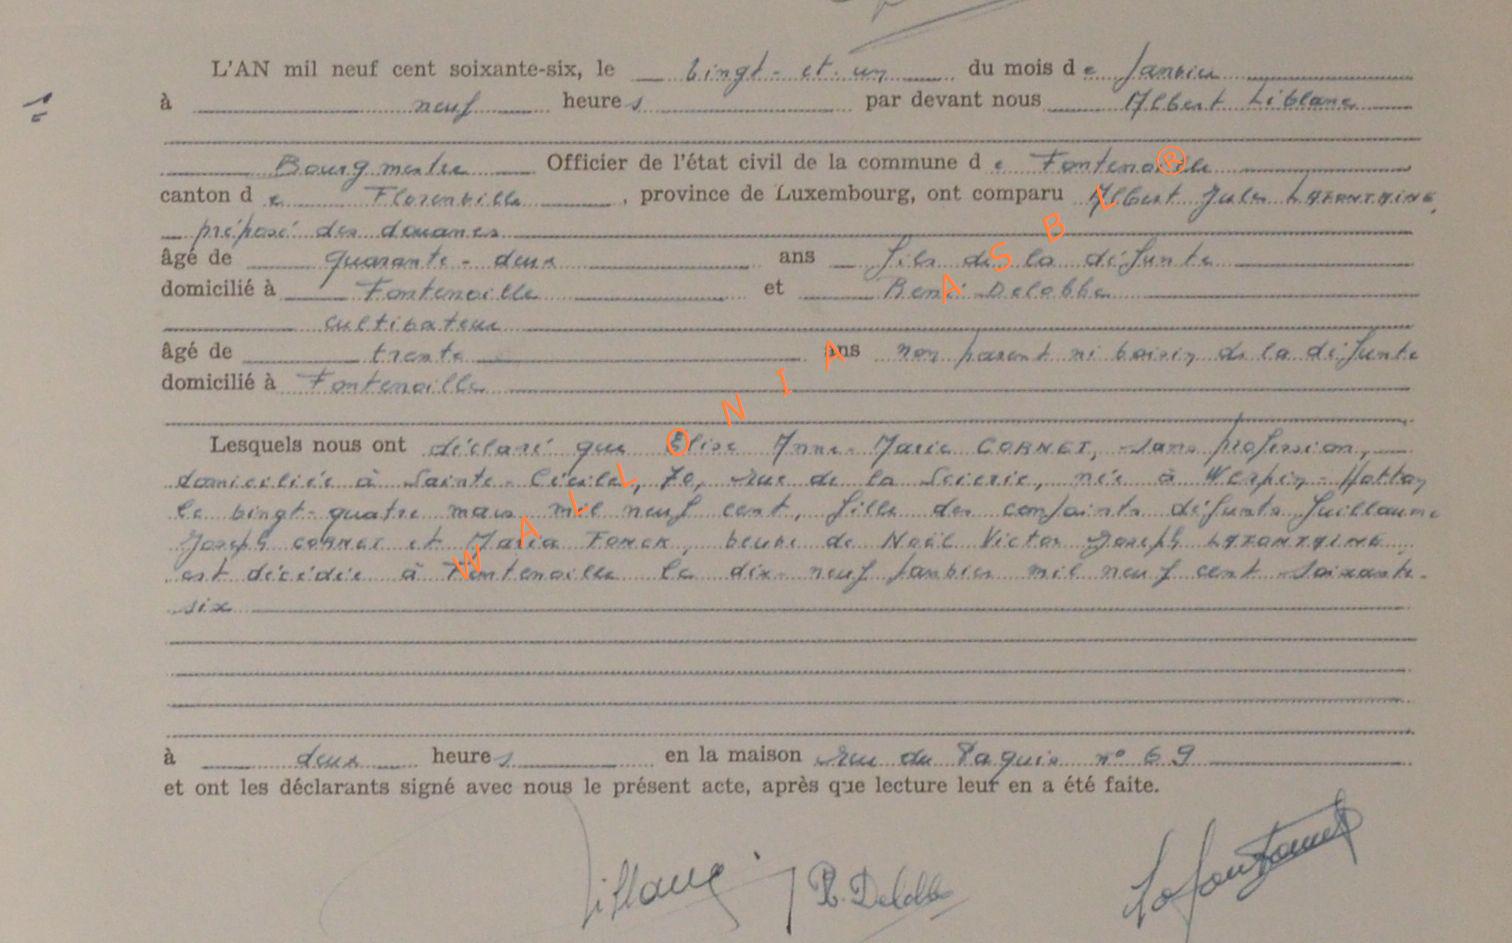 L'AN mil neuf cent soixante-six, le vingt-et-un du mois de Janvier
1
à neuf heures par devant nous Albert Liblanc
Bourgmestre Officier de l'état civil de la commune de Fontenoille
canton de Florenville, province de Luxembourg, ont comparu Albert Jules LAFONTAINE,
préposé des douanes
âgé de quarante-deux ans fils de la défunte
domicilié à Fontenoille et René Delobbe
cultivateur
âgé de trente ans non parent ni voisin de la défunte
domicilié à Fontenoille
Lesquels nous ont déclaré que Elise Anne-Marie CORNET, sans profession,
domiciliée à Sainte-Cécile, 70, rue de la Scierie, née à Werpin-Hotton
le vingt-quatre mars mil neuf cent, fille des conjoints défunts Guillaume
Joseph CORNET et Maria FONCK, veuve de Noël Victor Joseph LAFONTAINE
est décédée à Fontenoille le dix-neuf janvier mil neuf cent soixante-
six
à deux heures en la maison rue du Paquis n° 69
et ont les déclarants signé avec nous le présent acte, après que lecture leur en a été faite.
Liblanc R. Delobbe Lafontaine
WALLONIA ASBL ®